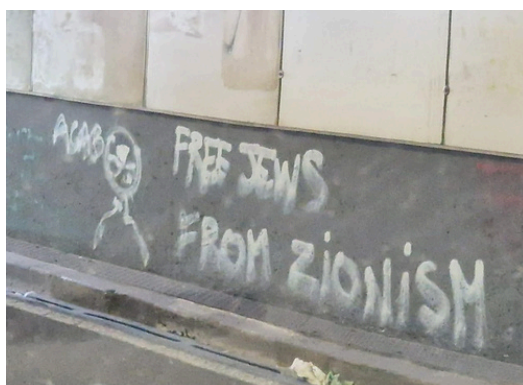 ACAB
FREE JEWS
FROM ZiONiSM